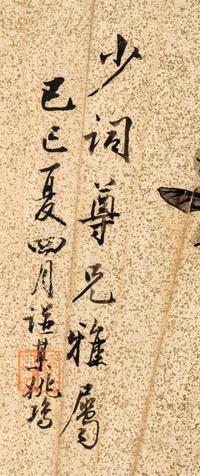 少詞尊兄雅屬
己巳夏四月諾某姚瑒